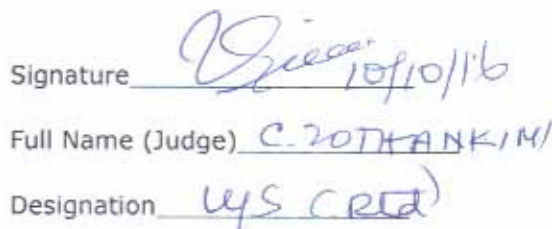 Signature 10/10/16
Full Name (Judge) C. ZOTHANKIMI
Designation U/S (Rtd)